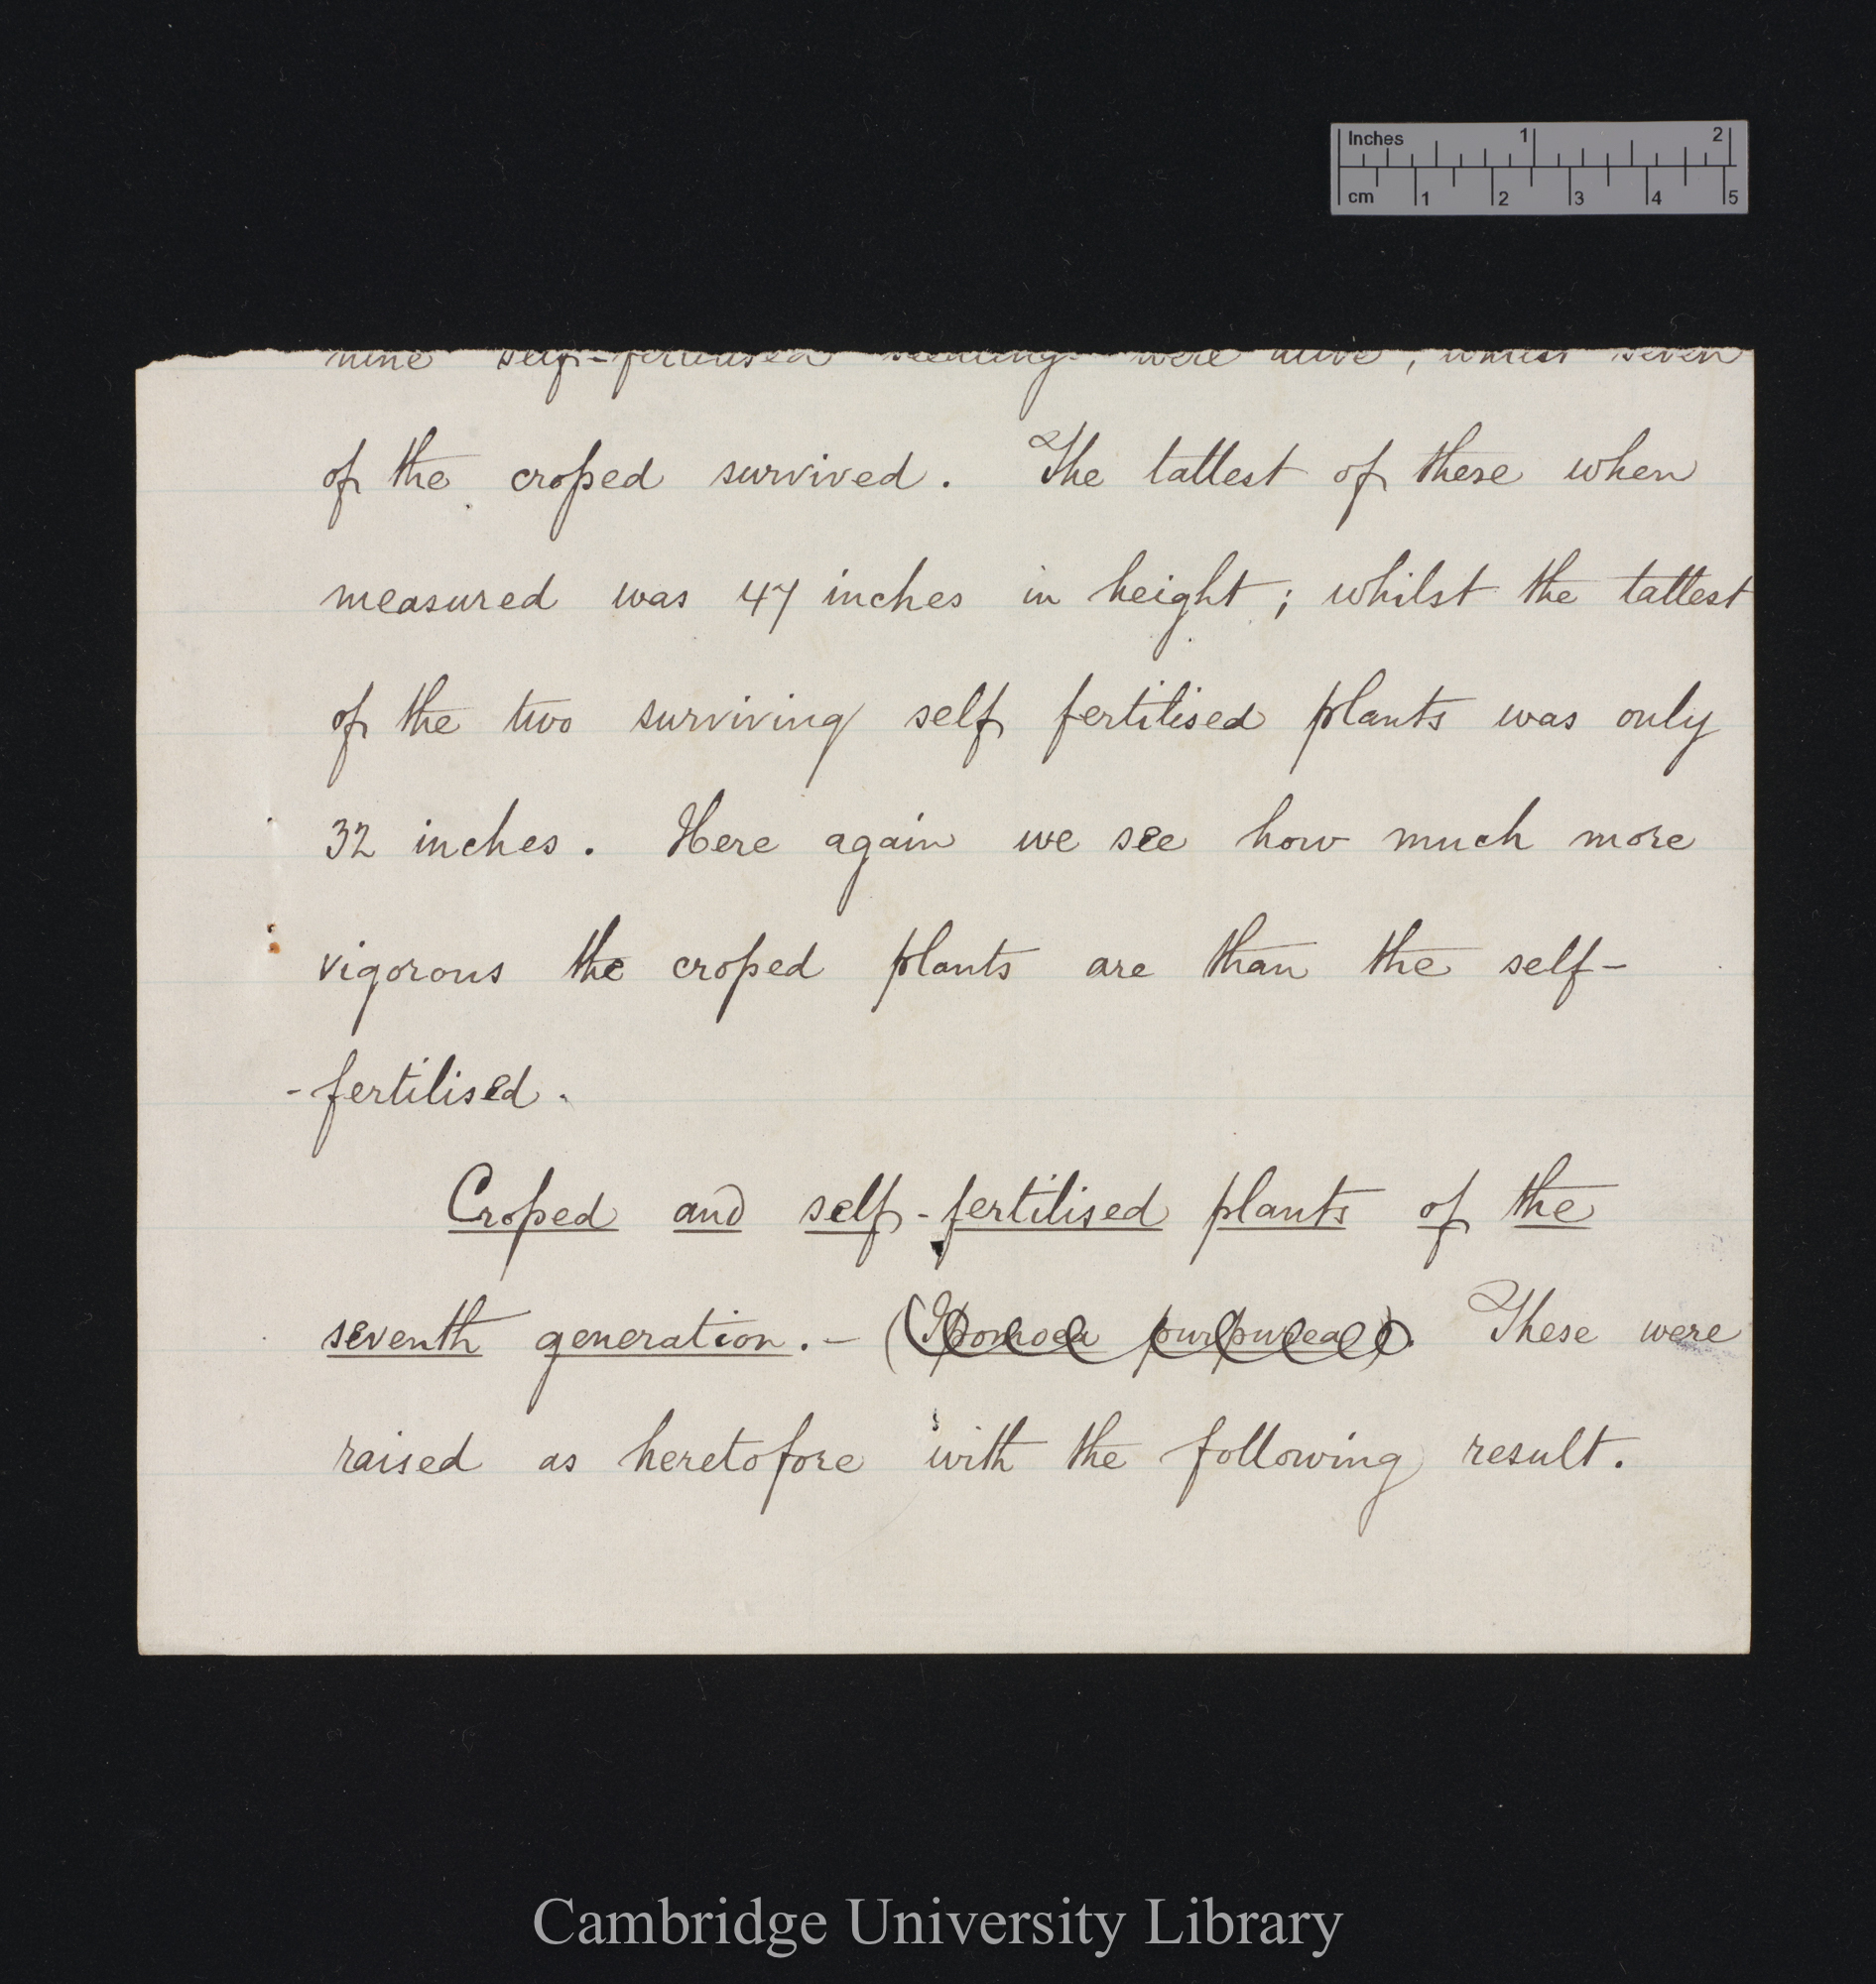 Inches 1 2
cm 1 2 3 4 5
nine self-fertilised seedlings were alive, whilst seven
of the crossed survived. The tallest of these when
measured was 47 inches in height; whilst the tallest
of the two surviving self fertilised plants was only
32 inches. Here again we see how much more
vigorous the crossed plants are than the self-
-fertilised.
Crossed and self-fertilised plants of the
seventh generation.- (Ipomoea purpurea). These were
raised as heretofore with the following result.
Cambridge University Library